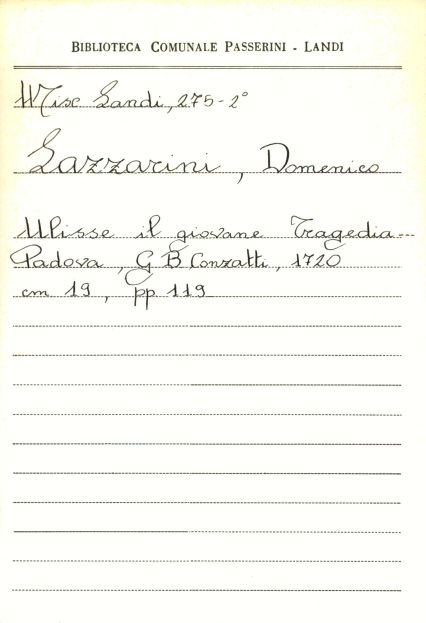 BIBLIOTECA COMUNALE PASSERINI - LANDI
Misc Landi, 275-2°
Lazzarini, Domenico
Ulisse il giovane Tragedia ---
Padova, G B Conzatti, 1720
cm 19, pp 119